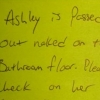 Ashley is Passed
out naked on t
Bathroom floor. Pleas
check on her